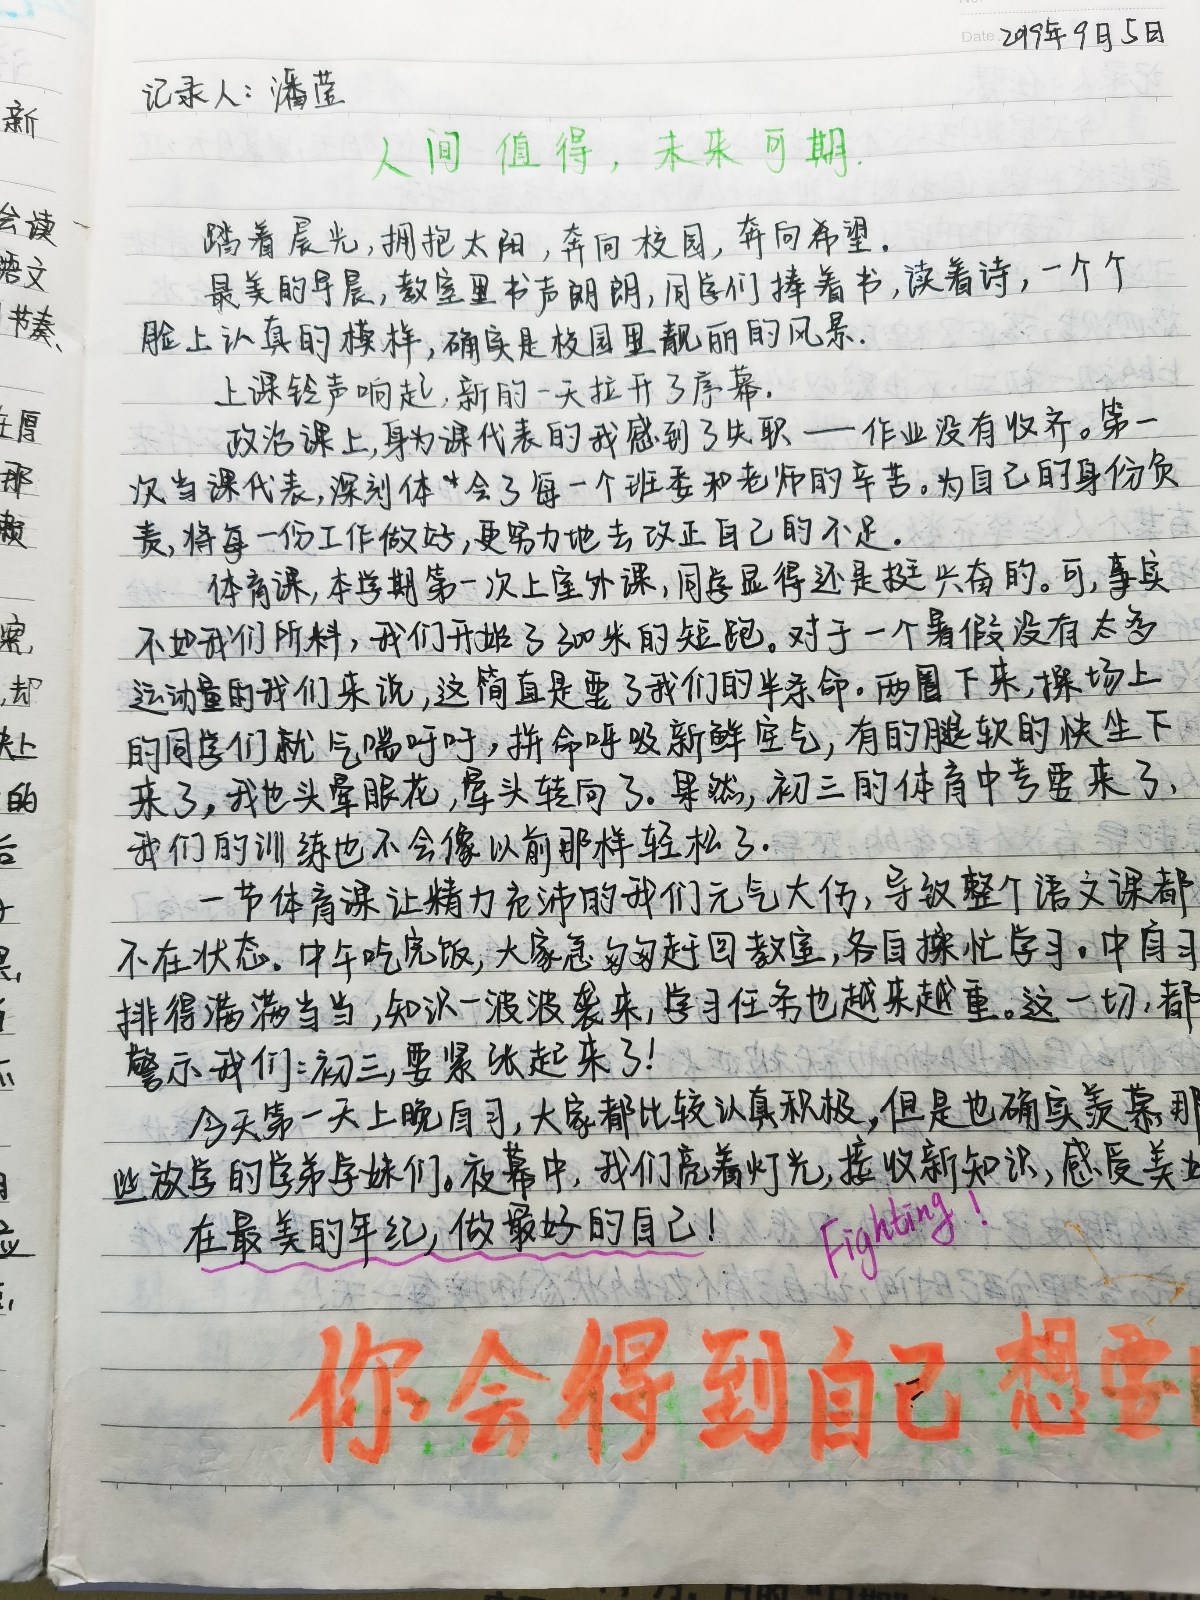 Date. 2019年9月5日
记录人：潘莹
人间值得，未来可期.
踏着晨光，拥抱太阳，奔向校园，奔向希望.
最美的早晨，教室里书声朗朗，同学们捧着书，读着诗，一个个
脸上认真的模样，确实是校园里靓丽的风景.
上课铃声响起，新的一天拉开了序幕.
政治课上，身为课代表的我感到了失职——作业没有收齐。第一
次当课代表，深刻体会了每一个班委和老师的辛苦。为自己的身份负
责，将每一份工作做好，更努力地去改正自己的不足.
体育课，本学期第一次上室外课，同学显得还是挺兴奋的。可，事实
不如我们所料，我们开始了300米的短跑。对于一个暑假没有太多
运动量的我们来说，这简直是要了我们的半条命。两圈下来，操场上
的同学们就气喘吁吁，拼命呼吸新鲜空气，有的腿软的快坐下
来了。我也头晕眼花，晕头转向了。果然，初三的体育中考要来了，
我们的训练也不会像以前那样轻松了.
一节体育课让精力充沛的我们元气大伤，导致整个语文课都
不在状态。中午吃完饭，大家急匆匆赶回教室，各自操忙学习。中自习
排得满满当当，知识一波波袭来，学习任务也越来越重。这一切，都
警示我们：初三，要紧张起来了！
今天第一天上晚自习，大家都比较认真积极，但是也确实羡慕那
些放学的学弟学妹们。夜幕中，我们亮着灯光，接收新知识，感受美好
在最美的年纪，做最好的自己！
Fighting！
你会得到自己想要
新
会读
语文
节奏、
在厚
那
懒
却
的
后
应